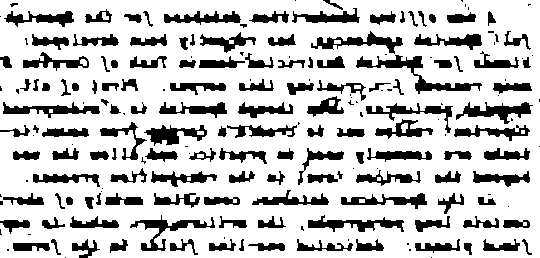 A new offline handwritten database for the Spanish
full Spanish sentences, has recently been developed:
stands for Spanish Restricted-domain Task of Cursive S
main reasons for creating this corpus. First of all,
Spanish sentences, even though Spanish is a widespread
important reason was to create a corpus from semantic
tasks are commonly used in practice and allow the use
beyond the lexicon level in the recognition process.
As the Spartacus database consisted mainly of shor
contain long paragraphs, the writers were asked to cop
fixed places: dedicated one-line fields in the forms.